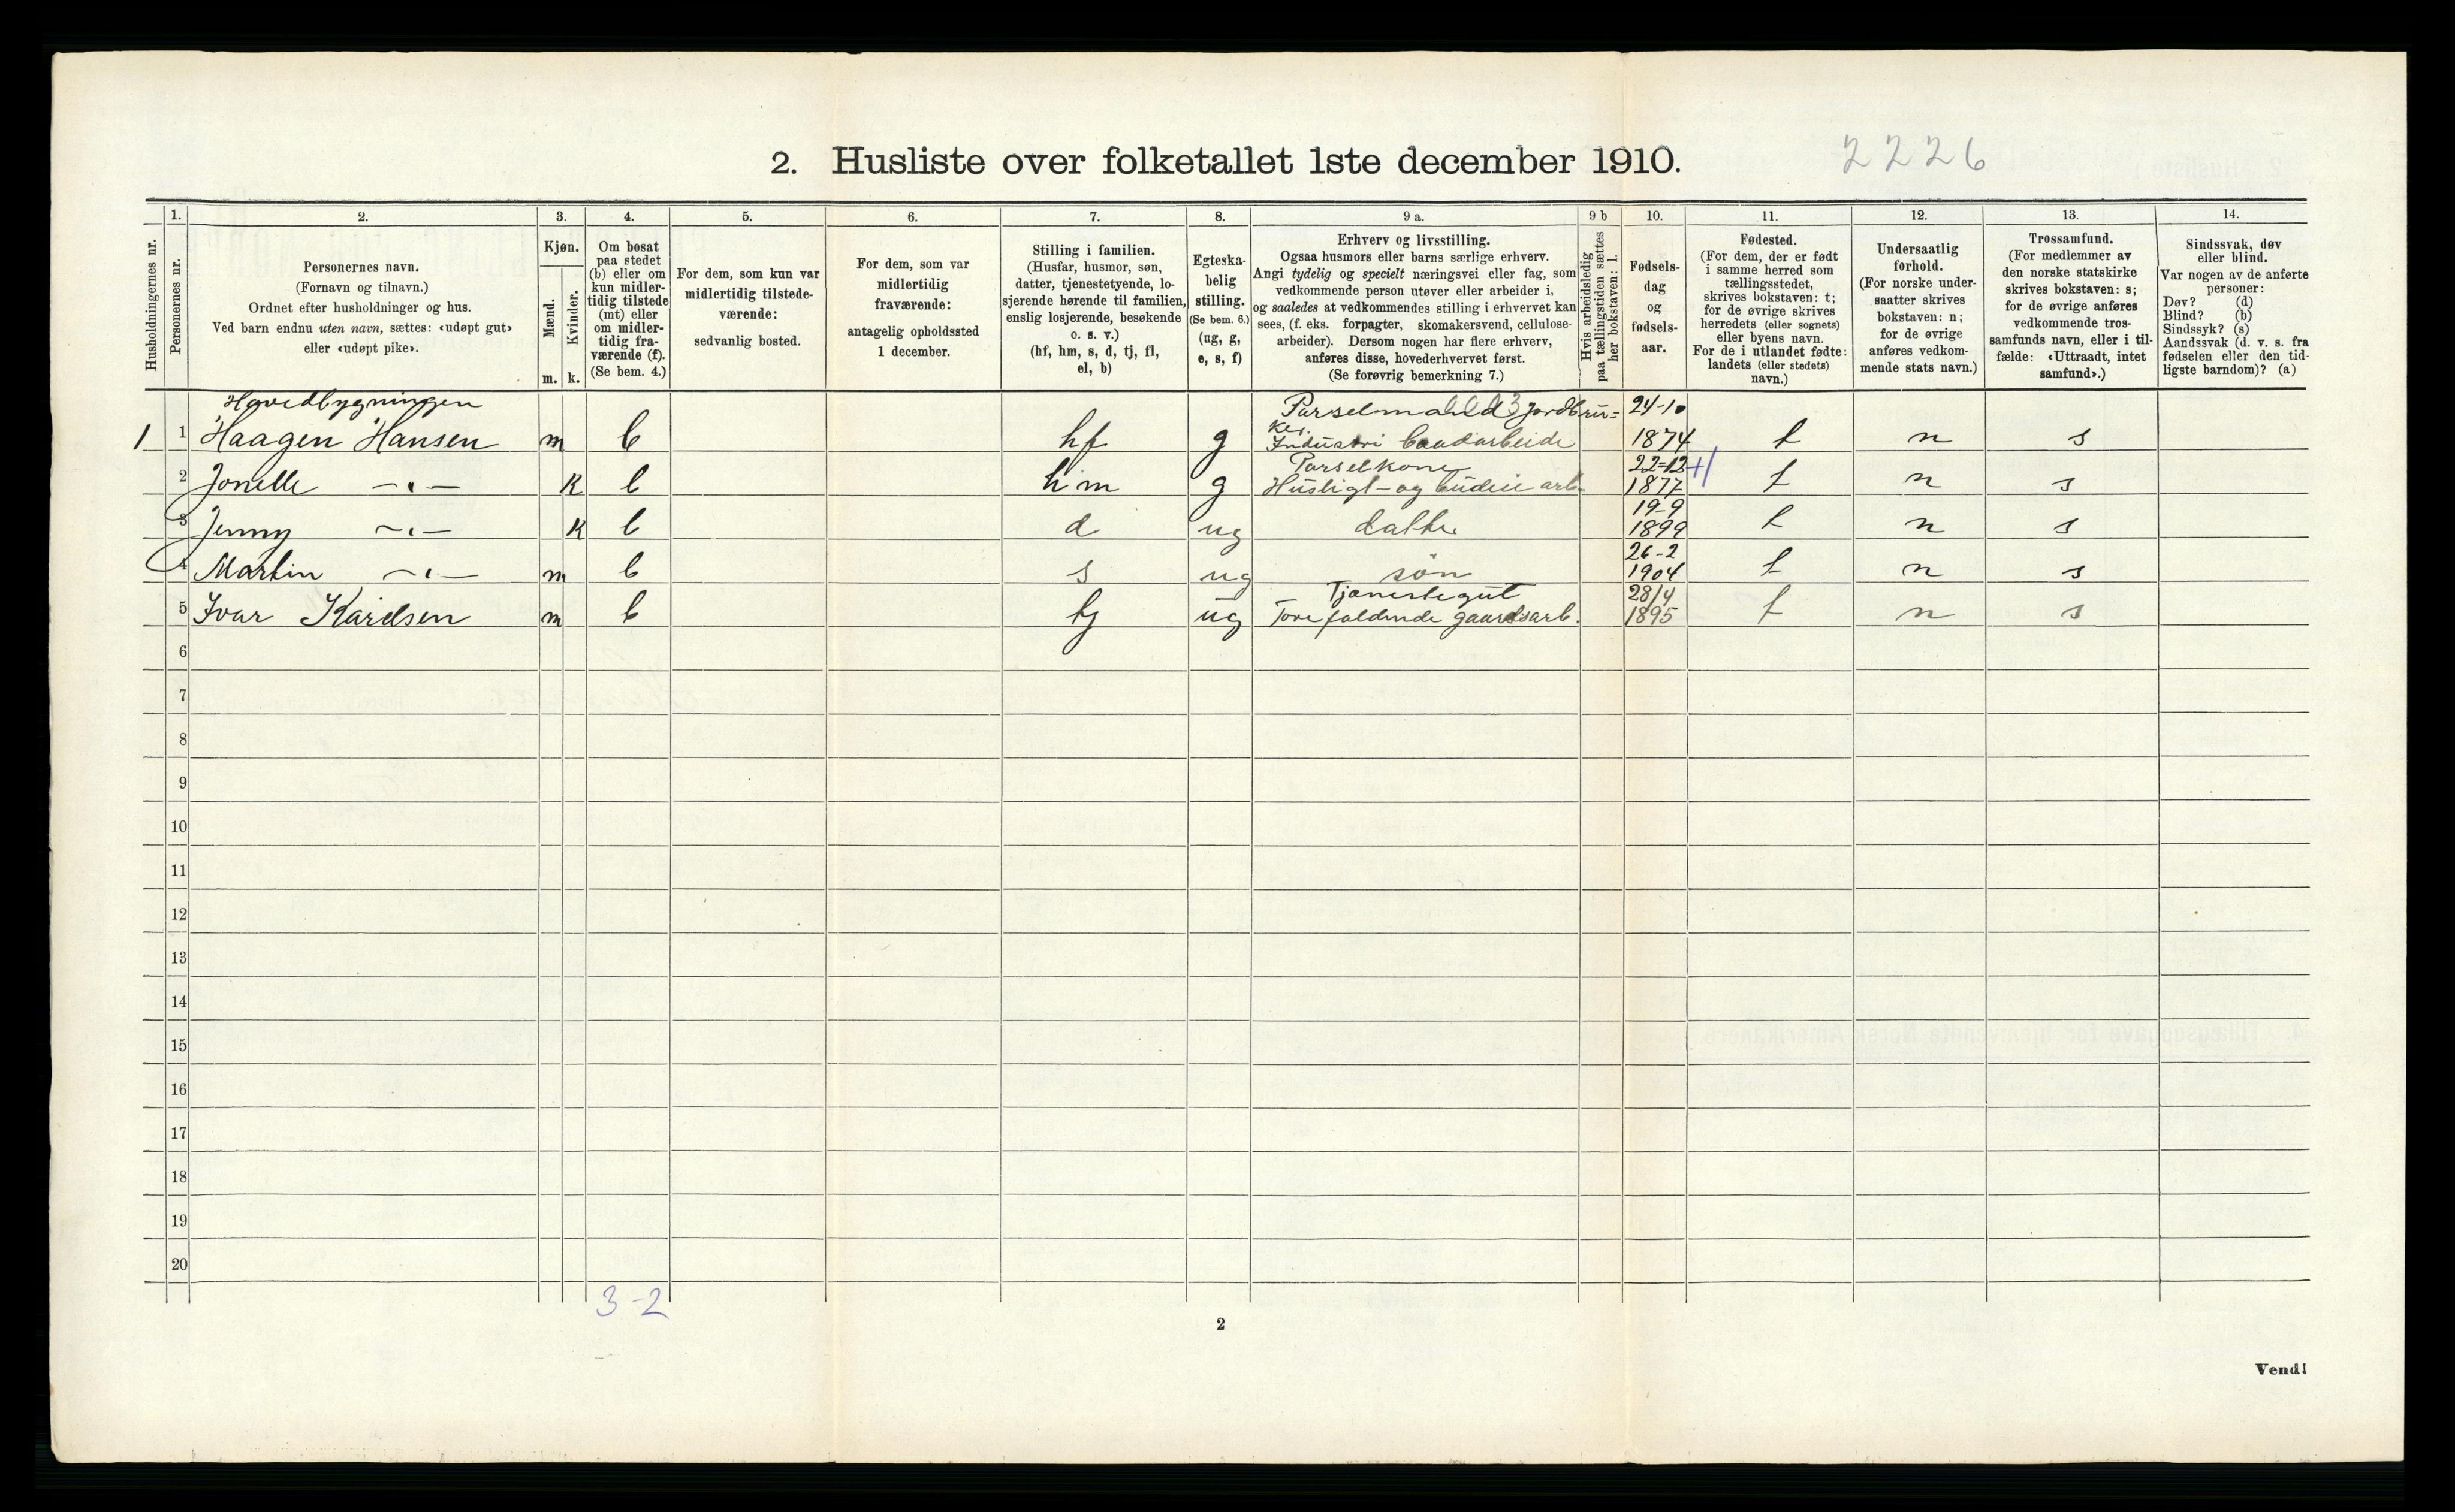 2. Husliste over folketallet 1ste december 1910.
2226
1. 2. 3. 4. 5. 6. 7. 8. 9 a. 9 b 10. 11. 12. 13. 14.
Husholdningernes nr.
Personernes nr.
Personernes navn.
(Fornavn og tilnavn.)
Ordnet efter husholdninger og hus.
Ved barn endnu uten navn, sættes: «udøpt gut»
eller «udøpt pike».
Kjøn.
Mænd.
Kvinder.
m. k.
Om bosat
paa stedet
(b) eller om
kun midler-
tidig tilstede
(mt) eller
om midler-
tidig fra-
værende (f).
(Se bem. 4.)
For dem, som kun var
midlertidig tilstede-
værende:
sedvanlig bosted.
For dem, som var
midlertidig
fraværende:
antagelig opholdssted
1 december.
Stilling i familien.
(Husfar, husmor, søn,
datter, tjenestetyende, lo-
sjerende hørende til familien,
enslig losjerende, besøkende
o. s. v.)
(hf, hm, s, d, tj, fl,
el, b)
Egteska-
belig
stilling.
(Se bem. 6.)
(ug, g,
e, s, f)
Erhverv og livsstilling.
Ogsaa husmors eller barns særlige erhverv.
Angi tydelig og specielt næringsvei eller fag, som
vedkommende person utøver eller arbeider i,
og saaledes at vedkommendes stilling i erhvervet kan
sees, (f. eks. forpagter, skomakersvend, cellulose-
arbeider). Dersom nogen har flere erhverv,
anføres disse, hovederhvervet først.
(Se forøvrig bemerkning 7.)
Hvis arbeidsledig
paa tællingstiden sættes
her bokstaven: l.
Fødsels-
dag
og
fødsels-
aar.
Fødested.
(For dem, der er født
i samme herred som
tællingsstedet,
skrives bokstaven: t;
for de øvrige skrives
herredets (eller sognets)
eller byens navn.
For de i utlandet fødte:
landets (eller stedets)
navn.)
Undersaatlig
forhold.
(For norske under-
saatter skrives
bokstaven: n;
for de øvrige
anføres vedkom-
mende stats navn.)
Trossamfund.
(For medlemmer av
den norske statskirke
skrives bokstaven: s;
for de øvrige anføres
vedkommende tros-
samfunds navn, eller i til-
fælde: «Uttraadt, intet
samfund».)
Sindssvak, døv
eller blind.
Var nogen av de anførte
personer:
Døv? (d)
Blind? (b)
Sindssyk? (s)
Aandssvak (d. v. s. fra
fødselen eller den tid-
ligste barndom)? (a)
Hovedbygningen Parselmand jordbru= 24-10
1 1 Haagen Hansen m b hf g ker. Industri 1874 t n s
Parselkone 22-12
2 Jonelle -"- K b hm g Husligt- og budeie arb. 1877 t n s
19-9
3 Jenny -"- K b d ug datter 1899 t n s
26-2
4 Martin -"- m b s ug søn 1904 t n s
Tjenestegut 28/4
5 Ivar Karelsen m b tj ug forefaldende gaardsarb. 1895 t n s
6
7
8
9
10
11
12
13
14
15
16
17
18
19
20
3-2
2
Vend!